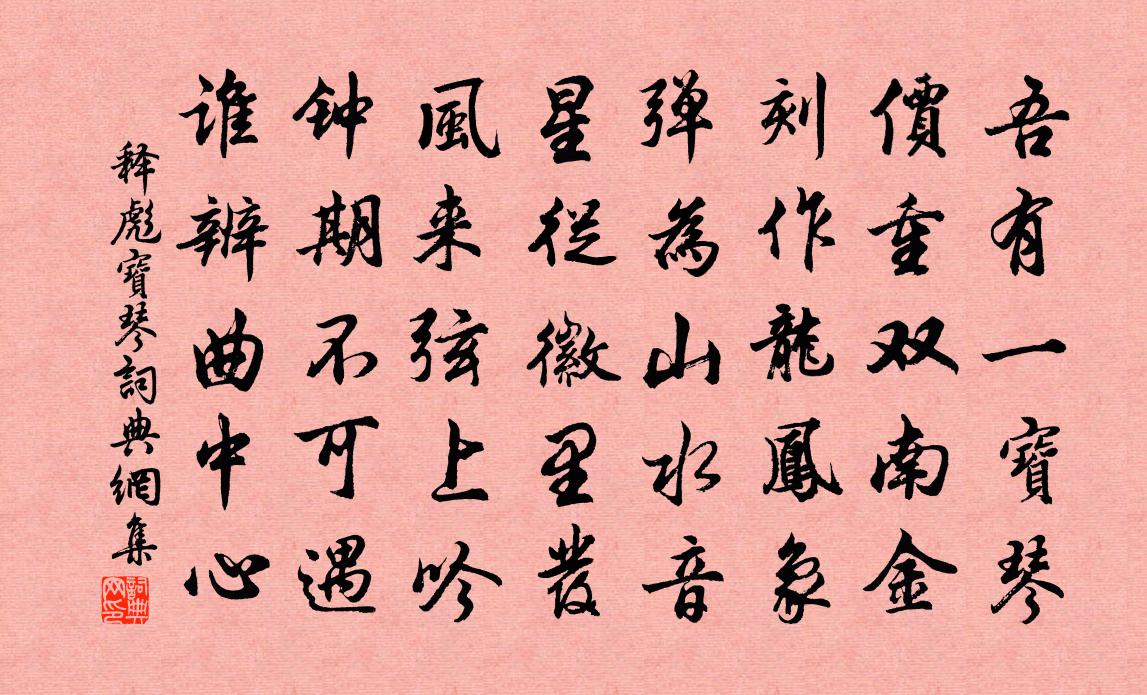 吾有一寶琴
價重双南金
刻作龍鳳象
弹為山水音
星從徽里發
風来弦上吟
钟期不可遇
谁辨曲中心
释彪寶琴詞典網集
詞典网印